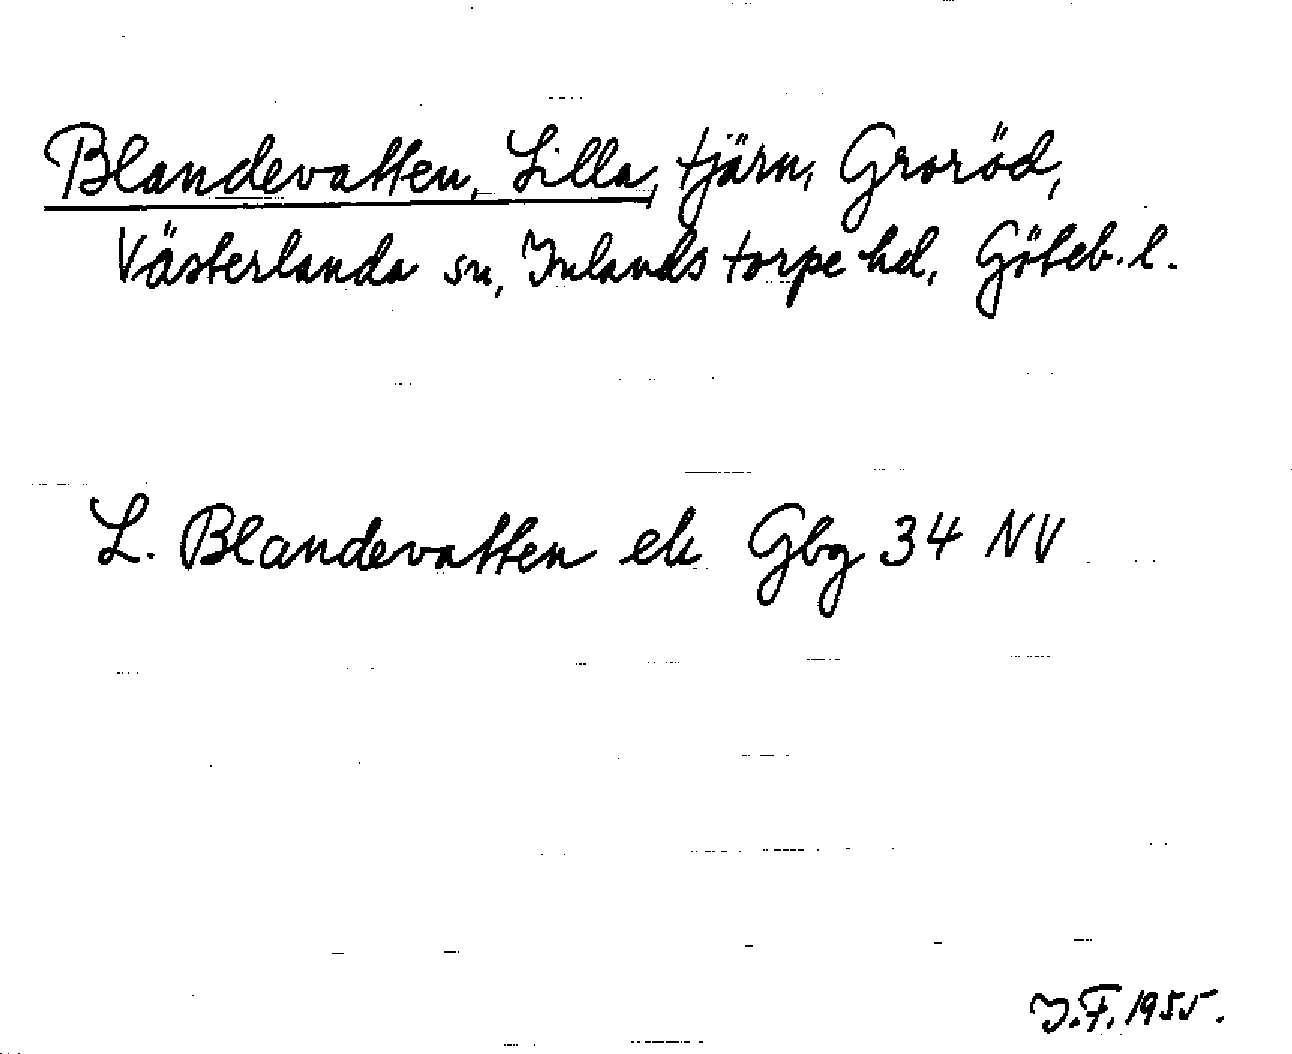 Blandevatten, Lilla, tjärn, Groröd,
Västerlanda sn, Inlands torpe hd, Göteb. l.
L. Blandevatten ek Gbg 34 NV
J.F. 1955.